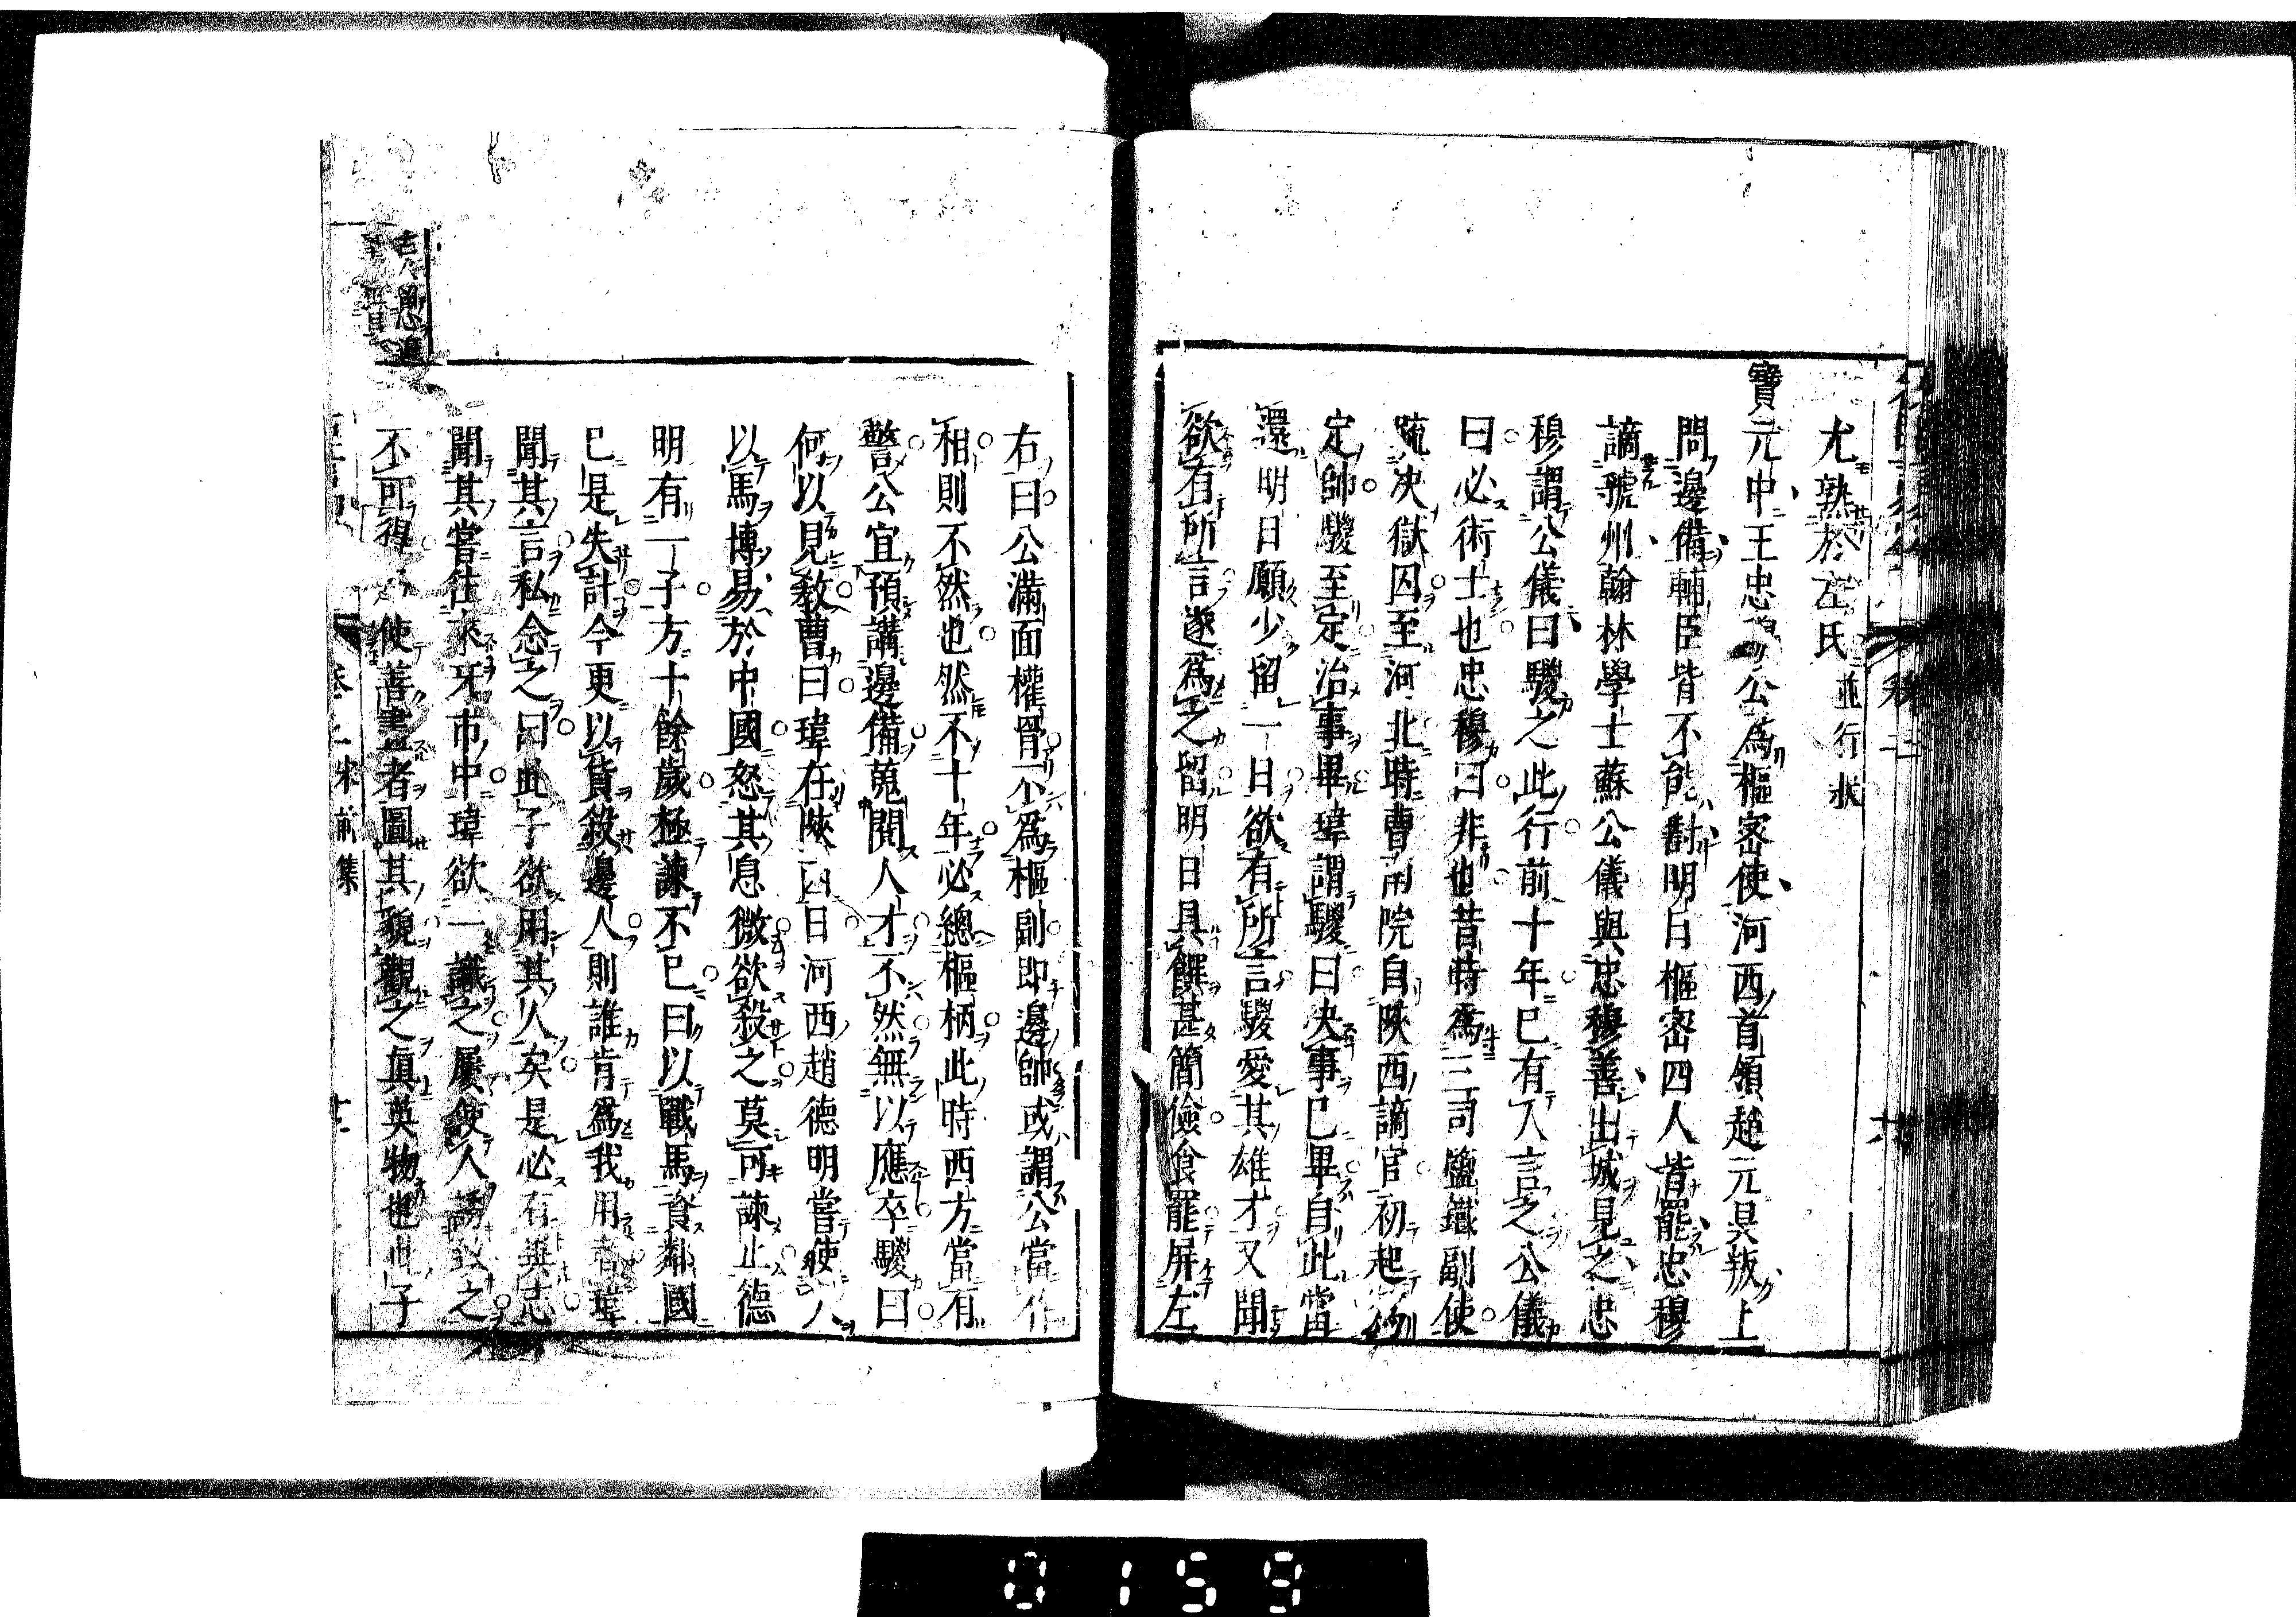 尤熟於左氏 並行狀
寶元中王忠穆公爲樞密使河西首領趙元昊叛上
問邊備輔臣皆不能對明日樞密四人皆罷忠穆
謫虢州翰林學士蘇公儀與忠穆善出城見之忠
穆謂公儀曰騣之此行前十年已有人言之公儀
曰必術士也忠穆曰非也昔時爲三司鹽鐵副使
疏决獄囚至河北時曹南院自陝西謫官初起
定帥騣至定治事畢瑋謂騣曰决事已畢自此當
還明日願少留一日欲有所言騣愛其雄才又聞
欲有所言遂爲之留明日具饌甚簡儉食罷屏左
右曰公滿面權骨不爲樞副即邊帥或謂公當作
相則不然也然不十年必總樞柄此時西方當有
警公宜預講邊備蒐閱人才不然無以應卒騣曰
何以見教曹曰瑋在陝西日河西趙德明嘗使人
以馬博易於中國怒其息微欲殺之莫可諫止德
明有一子方十餘歲極諫不已曰以戰馬資鄰國
已是失計今更以貨殺邊人則誰肯爲我用者瑋
聞其言私念之曰此子欲用其人矣是必有異志
聞其嘗往來牙市中瑋欲一識之屢使人誘致之
不可得 使善畫者圖其貌觀之真英物也此子
宋前集
0159